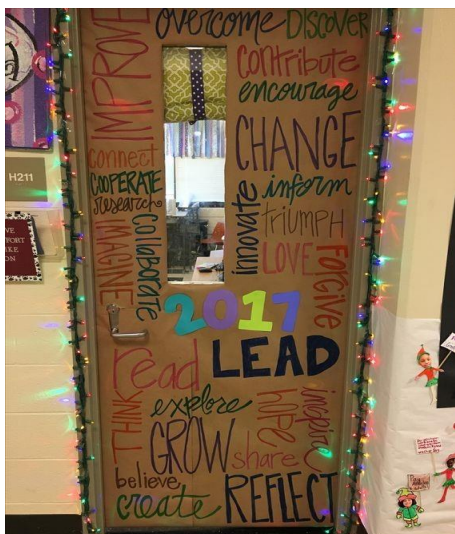 overcome DISCOVER
IMPROVE
contribute
encourage
CHANGE
connect
COOPERATE
research
IMAGINE
collaborate
innovate
inform
TRIUMPH
LOVE
FORGIVE
2017
read
LEAD
THINK
explore
HOPE
inspire
GROW
share
believe
create
REFLECT
H211